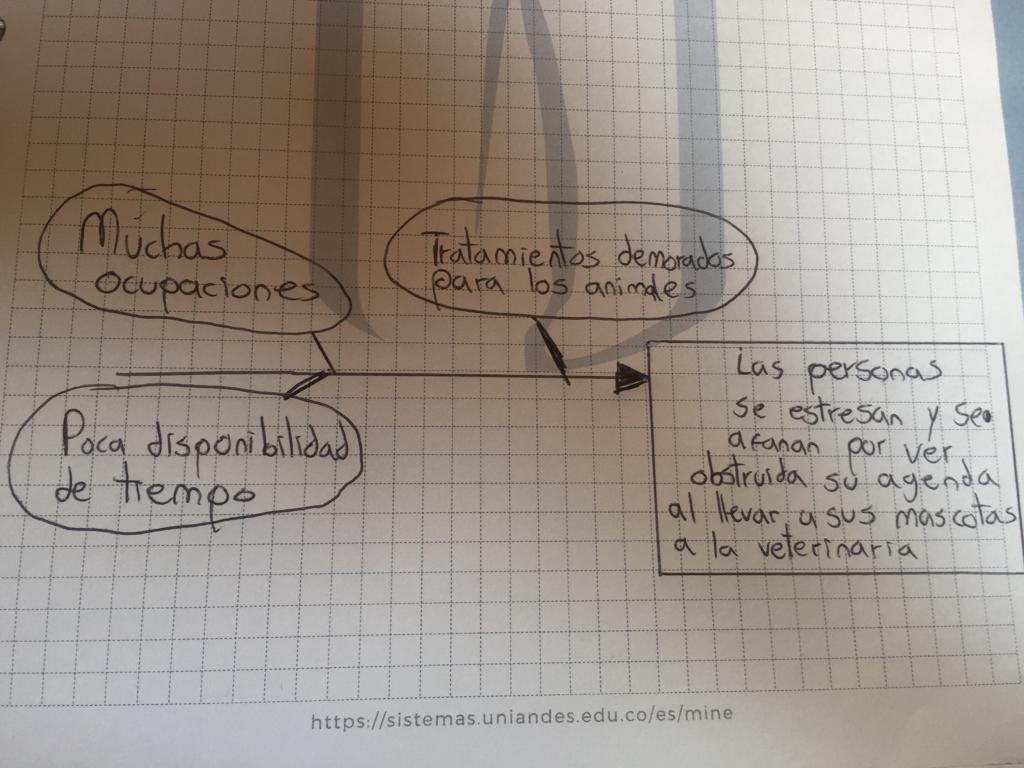 Muchas
ocupaciones
Tratamientos demorados
para los animales
Poca disponibilidad
de tiempo
Las personas
se estresan y se
afanan por ver
obstruida su agenda
al llevar a sus mascotas
a la veterinaria
https://sistemas.uniandes.edu.co/es/mine